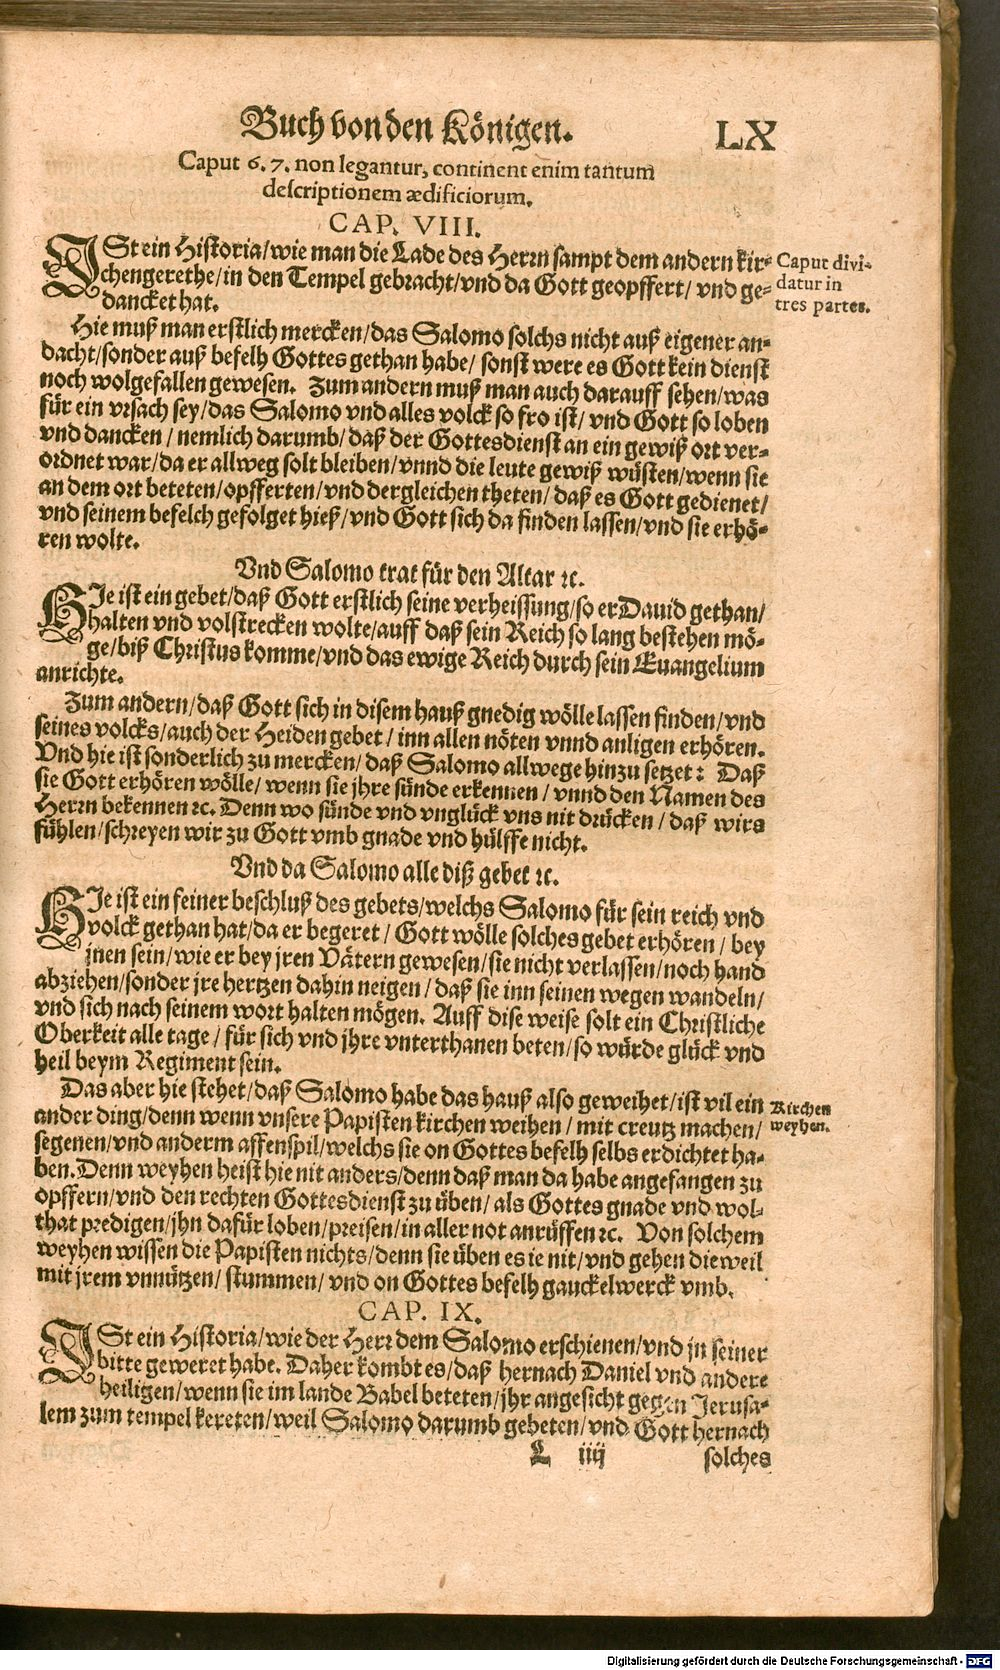 Buch von den Königen.
LX
Caput 6. 7. non legantur, continent enim tantum
descriptionem ædificiorum.
CAP. VIII.
ISt ein Historia/wie man die Lade des Herrn sampt dem andern kir-
chengerethe/in den Tempel gebracht/vnd da Gott geopffert/ vnd ge-
dancket hat.
Caput divi-
datur in
tres partes.
Hie muß man erstlich mercken/das Salomo solchs nicht auß eigener an-
dacht/sonder auß befelh Gottes gethan habe/ sonst were es Gott kein dienst
noch wolgefallen gewesen. Zum andern muß man auch darauff sehen/was
für ein vrsach sey/das Salomo vnd alles volck so fro ist/ vnd Gott so loben
vnd dancken / nemlich darumb/ daß der Gottesdienst an ein gewiß ort ver-
ordnet war/da er allweg solt bleiben/vnnd die leute gewiß wüsten/wenn sie
an dem ort beteten/opfferten/vnd dergleichen theten/ daß es Gott gedienet/
vnd seinem befelch gefolget hieß/vnd Gott sich da finden lassen/vnd sie erhö-
ren wolte.
Vnd Salomo trat für den Altar ꝛc.
HIe ist ein gebet/daß Gott erstlich seine verheissung/so er Dauid gethan/
halten vnd volstrecken wolte/auff daß sein Reich so lang bestehen mö-
ge/biß Christus komme/vnd das ewige Reich durch sein Euangelium
anrichte.
Zum andern/daß Gott sich in disem hauß gnedig wölle lassen finden/vnd
seines volcks/auch der Heiden gebet / inn allen nöten vnnd anligen erhören.
Vnd hie ist sonderlich zu mercken/ daß Salomo allwege hinzu setzet: Daß
sie Gott erhören wölle/ wenn sie jhre sünde erkennen / vnnd den Namen des
Herrn bekennen ꝛc. Denn wo sünde vnd vnglück vns nit drücken / daß wirs
fühlen/schreyen wir zu Gott vmb gnade vnd hülffe nicht.
Vnd da Salomo alle diß gebet ꝛc.
HIe ist ein feiner beschluß des gebets/welchs Salomo für sein reich vnd
volck gethan hat/da er begeret / Gott wölle solches gebet erhören / bey
jnen sein/wie er bey jren Vätern gewesen/sie nicht verlassen/noch hand
abziehen/sonder jre hertzen dahin neigen / daß sie inn seinen wegen wandeln/
vnd sich nach seinem wort halten mögen. Auff dise weise solt ein Christliche
Oberkeit alle tage / für sich vnd jhre vnterthanen beten/so würde glück vnd
heil beym Regiment sein.
Das aber hie stehet/daß Salomo habe das hauß also geweihet/ist vil ein
ander ding/denn wenn vnsere Papisten kirchen weihen / mit creutz machen/
segenen/vnd anderm affenspil/welchs sie on Gottes befelh selbs erdichtet ha-
ben. Denn weyhen heist hie nit anders/denn daß man da habe angefangen zu
opffern/vnd den rechten Gottesdienst zu üben/ als Gottes gnade vnd wol-
that predigen/jhn dafür loben/preisen/in aller not anrüffen ꝛc. Von solchem
weyhen wissen die Papisten nichts/denn sie üben es ie nit/vnd gehen die weil
mit jrem vnnützen/ stummen/ vnd on Gottes befelh gauckelwerck vmb.
Kirchen
weyhen.
CAP. IX.
ISt ein Historia/wie der Herr dem Salomo erschienen/vnd jn seiner
bitte geweret habe. Daher kombt es/daß hernach Daniel vnd andere
heiligen/wenn sie im lande Babel beteten/jhr angesicht gegen Jerusa-
lem zum tempel kereten/weil Salomo darumb gebeten/vnd Gott hernach
L iiij
solches
Digitalisierung gefördert durch die Deutsche Forschungsgemeinschaft - DFG